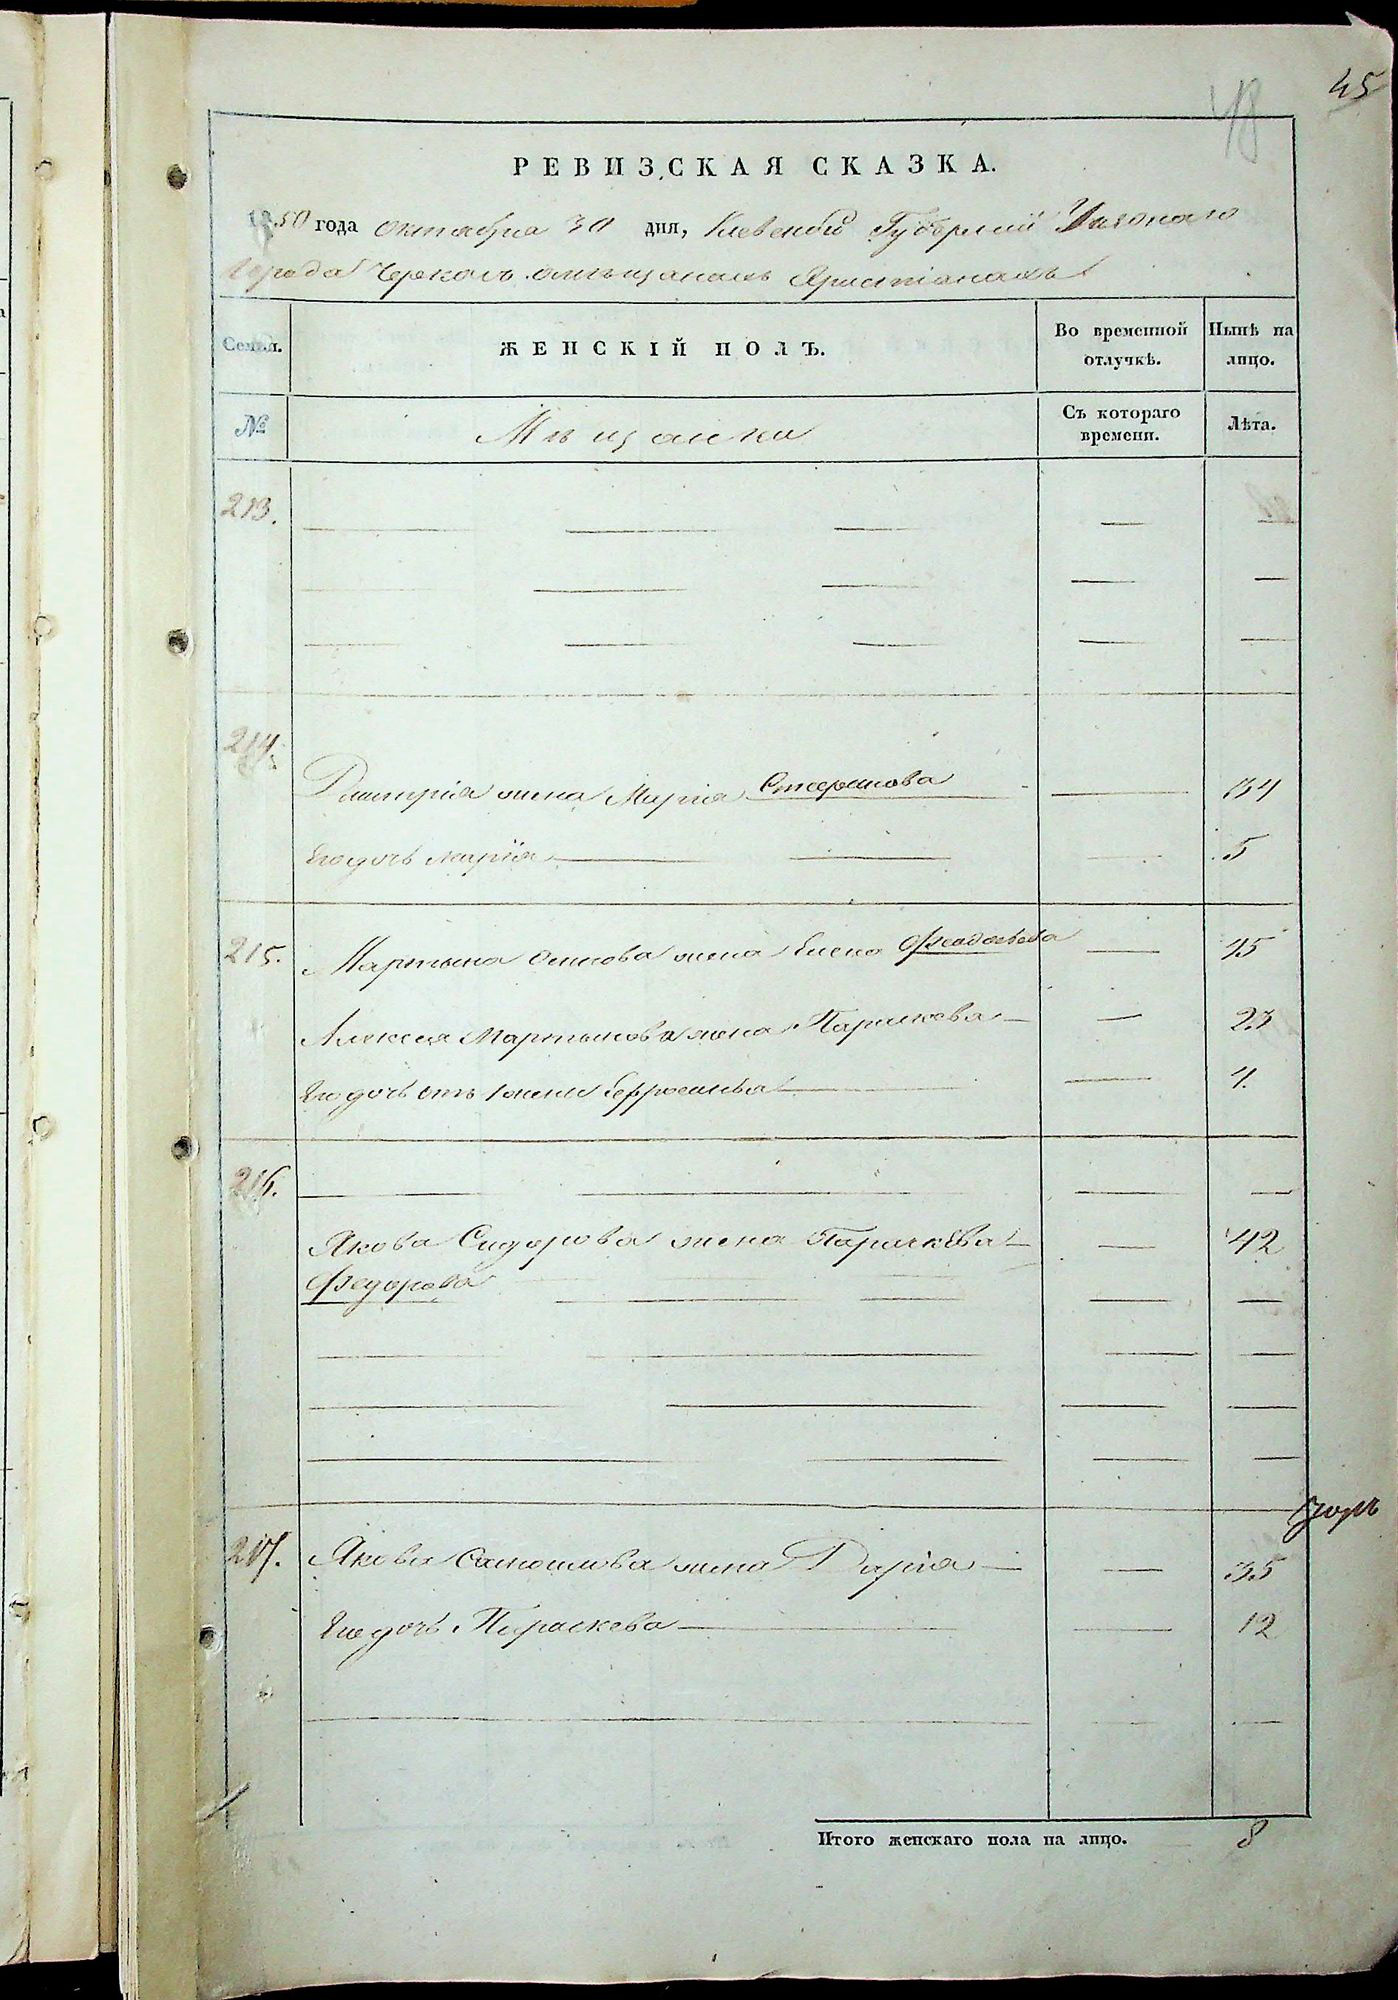 45
48
РЕВИЗСКАЯ СКАЗКА.
1850 года октября 30 дня, Киевской Губернии Уезднаго
Города Черкасъ о мѣщанахъ Христіанахъ
Семьи. ЖЕНСКІЙ ПОЛЪ. Во временной отлучкѣ. Нынѣ на лицо.
№ Мѣщанки Съ котораго времени. Лѣта.
213.
214.
Дмитрія жена Марія Стефанова 34
Его дочь Марія 5
215. Мартына Осипова жена Елена Феодосѣева 45
Алексея Мартынова жена Параскева 23
Его дочь отъ 1 жены Ефросинья 4.
216.
Якова Сидорова жена Параскева 42
Федорова
217. Якова Самойлова жена Дарія 35
Его дочь Параскева 12
Итого женскаго пола на лицо. 8